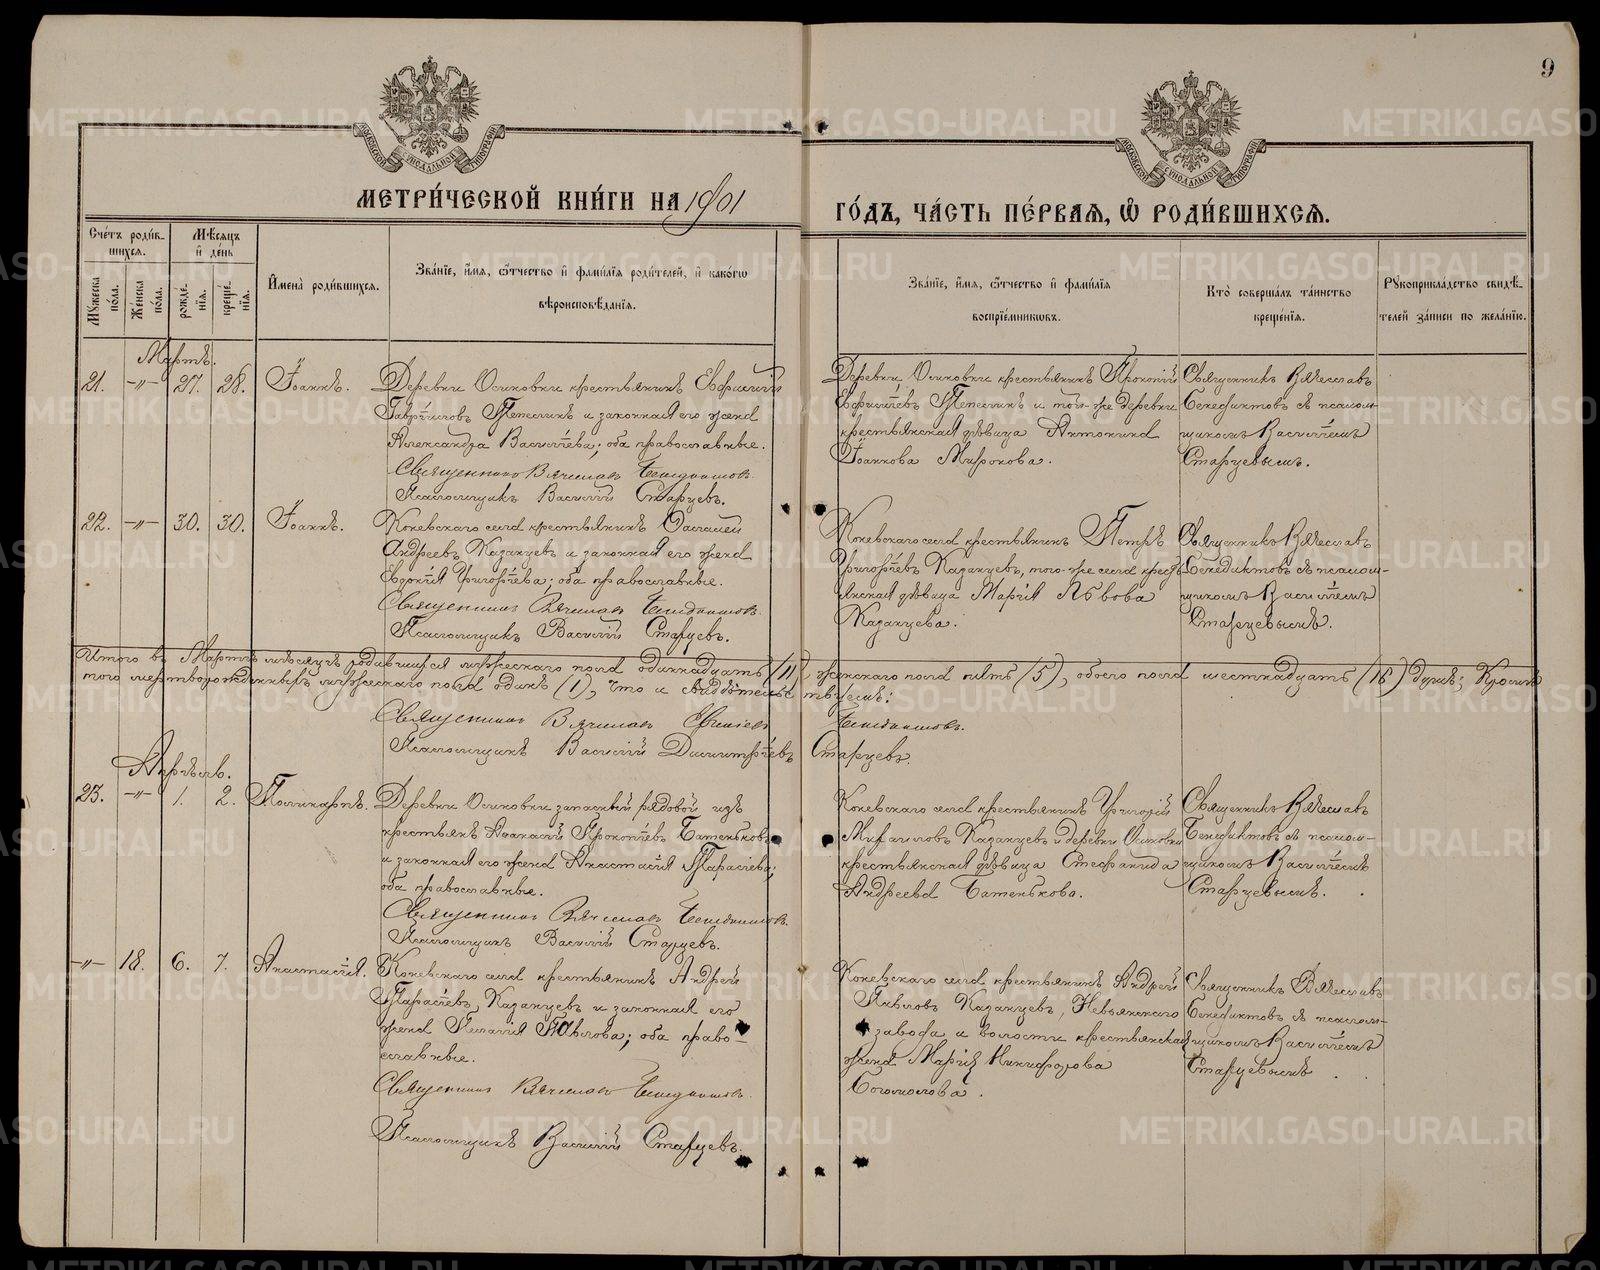 9
МОСКОВСКОЙ СѴНОДАЛЬНОЙ ТИПОГРАФІИ
МОСКОВСКОЙ СѴНОДАЛЬНОЙ ТИПОГРАФІИ
МЕТРИ́ЧЕСКОЙ КНИ́ГИ НА 1901
ГО́ДЪ, ЧА́СТЬ ПЕ́РВАЯ, Ѡ҆ РОДИ́ВШИХСЯ.
Сче́тъ роди́в-
шихся.
Мужеска по́ла.
Же́нска по́ла.
Мѣ́сяцъ
и҆ де́нь
рожде́нїя.
креще́нїя.
И҆мена̀ роди́вшихся.
Зва́нїе, и҆́мя, ѻ҆́тчество и҆ фами́лїя роди́телей, и҆ како́гѡ
вѣроисповѣ́данїя.
Зва́нїе, и҆́мя, ѻ҆́тчество и҆ фами́лїя
воспрїе́мникѡвъ.
Кто̀ соверша́лъ та́инство
креще́нїя.
Рукоприкла́дство свидѣ́-
телей за́писи по жела́нїю.
Мартъ.
21. —„— 27. 28. Іоаннъ.
Деревни Осиновки крестьянинъ Евфимій
Гавріиловъ Пепелинъ и законная его жена
Александра Васильева; оба православные.
Священникъ Вячеславъ Бенедиктовъ.
Псаломщикъ Василій Старцевъ.
Деревни Осиновки крестьянинъ Прокопій
Евфиміевъ Пепелинъ и той-же деревни
крестьянская дѣвица Антонина
Іоаннова Миронова.
Священникъ Вячеславъ
Бенедиктовъ съ псалом-
щикомъ Василіемъ
Старцевымъ.
22. —„— 30. 30. Іоаннъ.
Коневскаго села крестьянинъ
Андреевъ Казанцевъ и законная его жена
Евдокія Григоріева; оба православные.
Священникъ Вячеславъ Бенедиктовъ.
Псаломщикъ Василій Старцевъ.
Коневскаго села крестьянинъ Петръ
Григоріевъ Казанцевъ, того-же села кресть-
янская дѣвица Марія Львова
Казанцева.
Священникъ Вячеславъ
Бенедиктовъ съ псалом-
щикомъ Василіемъ
Старцевымъ.
Итого въ Мартѣ мѣсяцѣ родившихся мужескаго пола одиннадцать (11), женскаго пола пять (5), обоего пола шестнадцать (16) душъ; Кромѣ
того мертворожденныхъ мужескаго пола одинъ (1), что и свидѣтельствуемъ:
Священникъ Вячеславъ Бенедиктовъ.
Псаломщикъ Василій Димитріевъ Старцевъ.
Апрѣль.
23. —„— 1. 2. Поликарпъ.
Деревни Осиновки запасный рядовой изъ
крестьянъ Аѳанасій Прокопіевъ Батеньковъ
и законная его жена Анастасія Тарасіева;
оба православные.
Священникъ Вячеславъ Бенедиктовъ.
Псаломщикъ Василій Старцевъ.
Коневскаго села крестьянинъ Григорій
Михаиловъ Казанцевъ и деревни Осиновки
крестьянская дѣвица Стефанида
Андреева Батенькова.
Священникъ Вячеславъ
Бенедиктовъ съ псалом-
щикомъ Василіемъ
Старцевымъ.
—„— 18. 6. 7. Анастасія.
Коневскаго села крестьянинъ Андрей
Тарасіевъ Казанцевъ и законная его
жена Пелагія Павлова; оба право-
славные.
Священникъ Вячеславъ Бенедиктовъ.
Псаломщикъ Василій Старцевъ.
Коневскаго села крестьянинъ Андрей
Павловъ Казанцевъ, Невьянскаго
завода и волости крестьянская
жена Марія Никифорова
Богомолова.
Священникъ Вячеславъ
Бенедиктовъ съ псалом-
щикомъ Василіемъ
Старцевымъ
METRIKI.GASO-URAL.RU